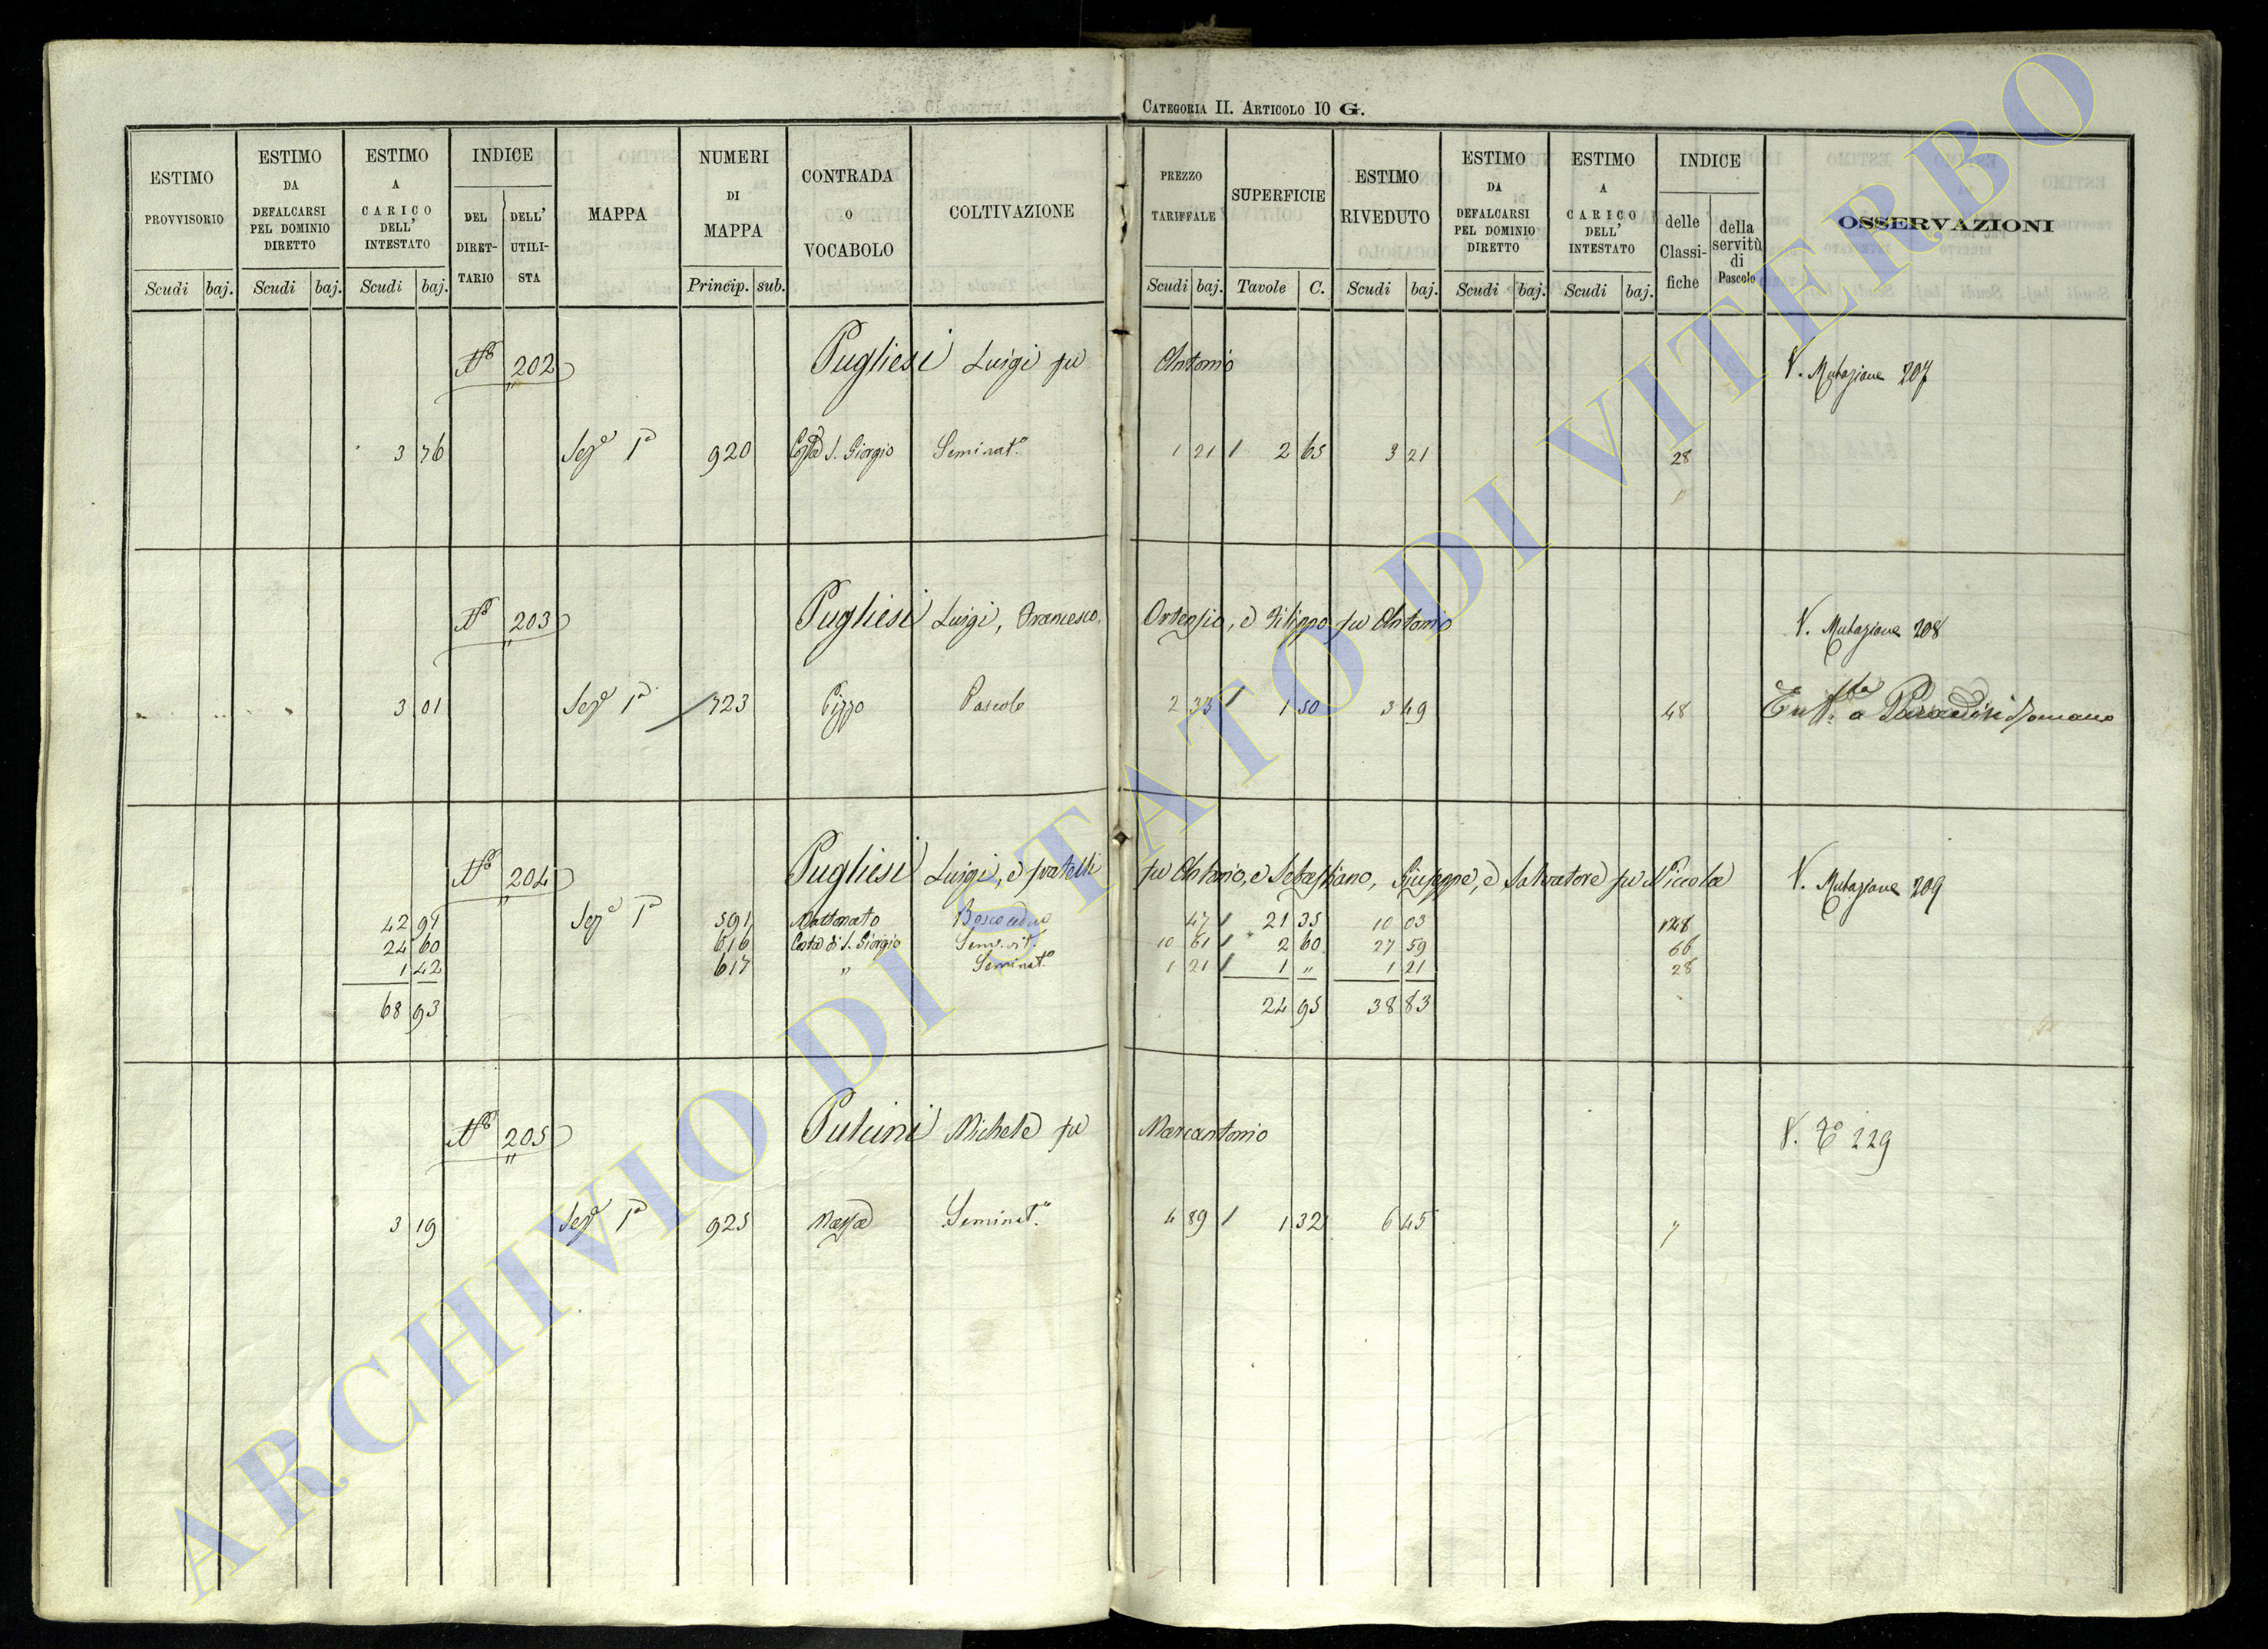 CATEGORIA II. ARTICOLO 10 G.
ESTIMO PROVVISORIO Scudi baj.
ESTIMO DA DEFALCARSI PEL DOMINIO DIRETTO Scudi baj.
ESTIMO A CARICO DELL' INTESTATO Scudi baj.
INDICE DEL DIRET-TARIO DELL' UTILI-STA
MAPPA
NUMERI DI MAPPA Princip. sub.
CONTRADA O VOCABOLO
COLTIVAZIONE
PREZZO TARIFFALE Scudi baj.
SUPERFICIE Tavole C.
ESTIMO RIVEDUTO Scudi baj.
ESTIMO DA DEFALCARSI PEL DOMINIO DIRETTO Scudi baj.
ESTIMO A CARICO DELL' INTESTATO Scudi baj.
INDICE delle Classi-fiche della servitù di Pascolo
OSSERVAZIONI
N° 202 Pugliesi Luigi fu Antonio V. Mutazione 207
3 76 Sez.e 1a 920 Costa S. Giorgio Seminat.o 1 21 2 65 3 21 28
N° 203 Pugliesi Luigi, Francesco, Ortensio, e Filippo fu Antonio V. Mutazione 208
3 01 Sez.e 1a 723 Pizzo Pascolo 2 33 1 50 3 49 48 a Paradisi Romano
N° 204 Pugliesi Luigi, e fratelli fu Antonio, e Sebastiano, Giuseppe, e Salvatore fu Niccola V. Mutazione 209
42 91 Sez.e 1a 591 Mattonato Bosco ceduo 47 21 35 10 03 128
24 60 616 Costa di S. Giorgio Sem. vit. 10 61 2 60 27 59 66
1 42 617 " Seminat.o 1 21 1 " 1 21 28
68 93 24 95 38 83
N° 205 Pulcini Michele fu Marcantonio V. T° 229
3 19 Sez.e 1a 925 Massa Seminat.o 4 89 1 32 6 45 7
ARCHIVIO DI STATO DI VITERBO